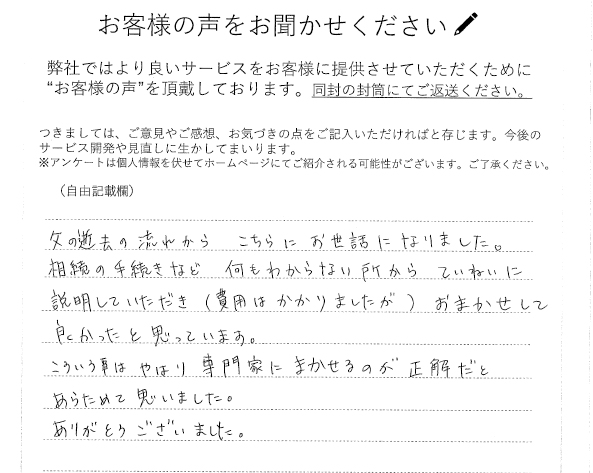 お客様の声をお聞かせください
弊社ではより良いサービスをお客様に提供させていただくために
“お客様の声”を頂戴しております。同封の封筒にてご返送ください。
つきましては、ご意見やご感想、お気づきの点をご記入いただければと存じます。今後の
サービス開発や見直しに生かしてまいります。
※アンケートは個人情報を伏せてホームページにてご紹介される可能性がございます。ご了承ください。
（自由記載欄）
父の逝去の流れから こちらに お世話になりました。
相続の手続きなど 何もわからない所から ていねいに
説明していただき（費用はかかりましたが）おまかせして
良かったと思っています。
こういう事は やはり 専門家に まかせるのが 正解だと
あらためて思いました。
ありがとうございました。